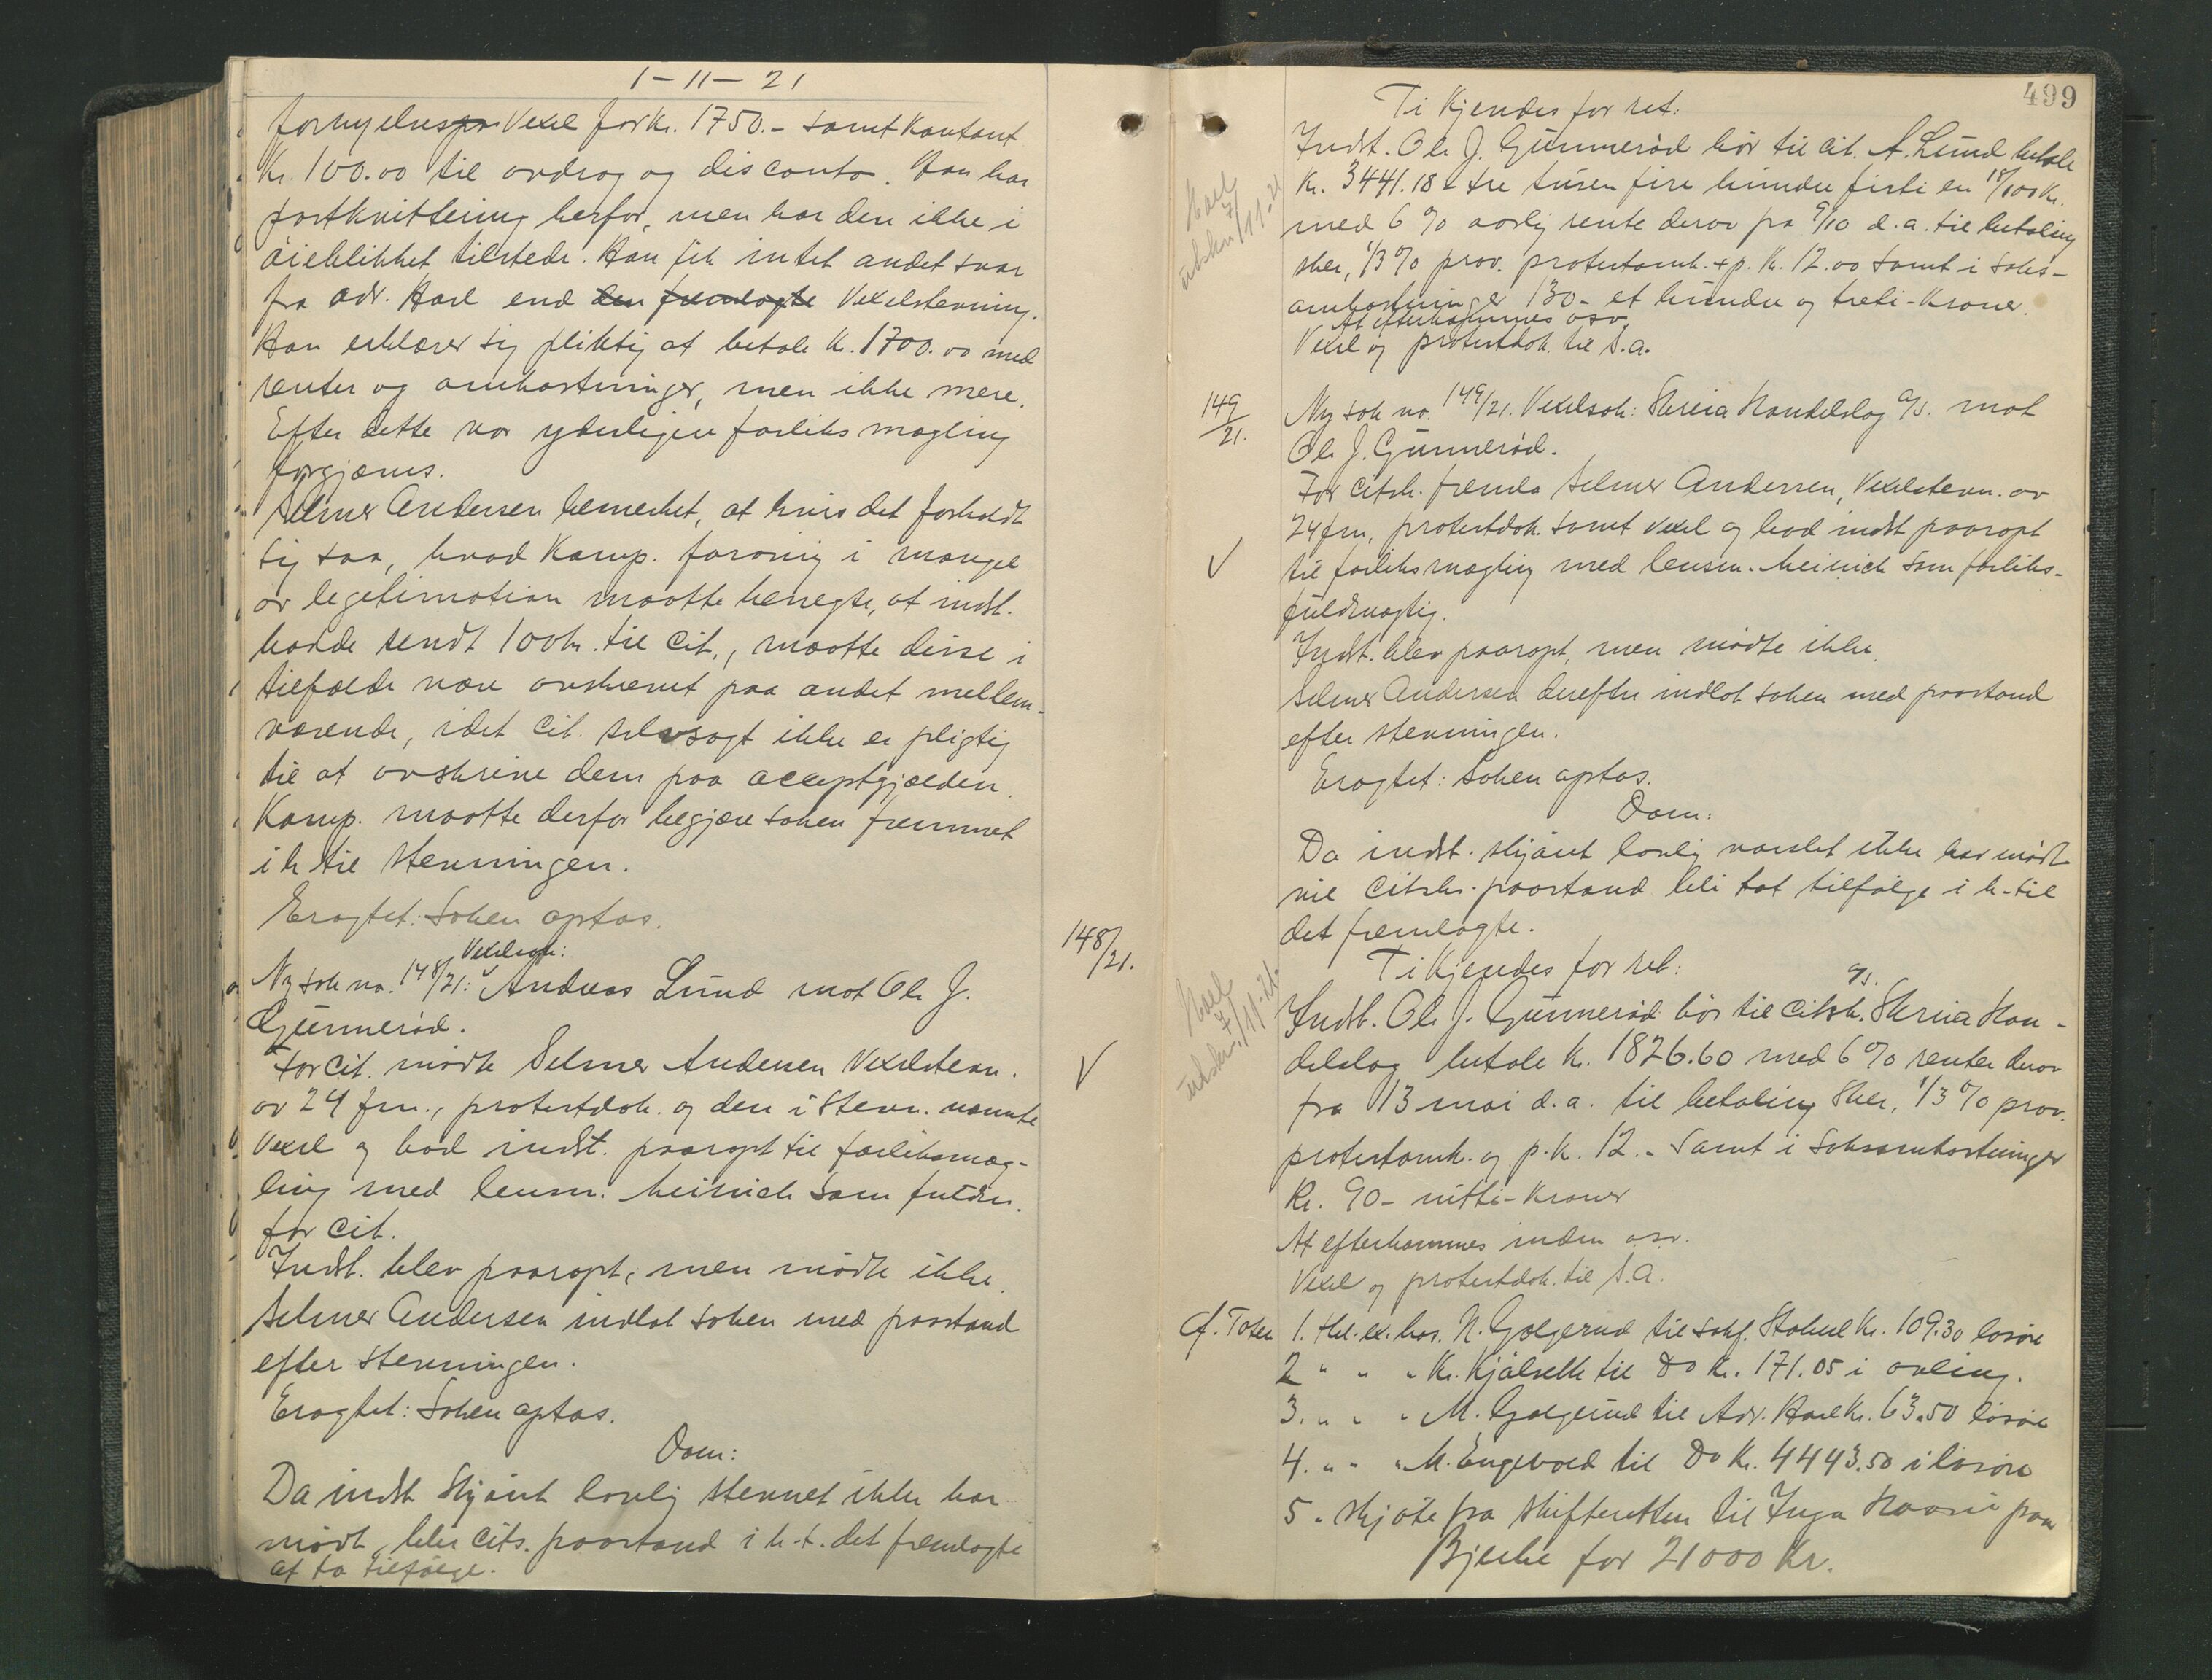 1-11-21
fornyelses Vexel for kr. 1750.- samt kontant
Kr. 100.00 til avdrag og disconto. Han har
postkvittering herfor, men har den ikke i
öieblikket tilstede. Han fik intet andet svar
fra adv. Hoel end den fremlagte Vexelstevning.
Han erklærer sig pliktig at betale kr. 1700.00 med
renter og omkostninger, men ikke mere.
Efter dette var yderligere forliksmægling
forgjæves.
Selmer Andersen bemerket, at hvis det forholdt
sig saa, hvad Komp. forövrig i mangel
av legitimation maatte benegte, at indst.
havde sendt 100 kr. til cit., maatte disse i
tilfælde være avskrevet paa andet mellem-
værende, idet cit. selvsagt ikke er pligtig
til at avskrive dem paa acceptgjælden.
Komp. maatte derfor begjære saken fremmet
i h. til stevningen.
Eragtet: Saken optas.
Vexelsak:
Ny sak no. 148/21: Andreas Lund mot Ole J.
Gunneröd.
148/21.
For cit. mödte Selmer Andersen Vexelstevn.
av 24 fm., protestdok. og den i stevn. nævnte
Vexel og bad indst. paaropt til forliksmæg-
ling med lensm. Meinich som fuldm.
for cit.
V
Indst. blev paaropt, men mödte ikke.
Selmer Andersen indlot saken med paastand
efter stevningen.
Eragtet: Saken optas.
Dom:
Da indst. skjönt lovlig stevnet ikke har
mödt, blir cits. paastand i h.t. det fremlagte
at ta tilfölge.
499
Ti kjendes for ret:
Indst. Ole J. Gunneröd bör til cit. A. Lund betale
Kr. 3441.18 tre tusen fire hundre firti en 18/100 kr.
med 6 % aarlig rente derav fra 9/10 d.a. til betaling
sker, 1/3 % prov. protestomk. + p. Kr. 12.00 samt i saks-
omkostninger 130- et hundre og tretti-Kroner.
At efterkommes osv.
Vexel og protestdok. til S.A.
Hoel 7/11-21
utskr.
149/21.
Ny sak no. 149/21. Vexelsak: Skreia Handelslag A/S. mot
Ole J. Gunneröd.
For citsk. fremla Selmer Andersen, Vexelstevn. av
24 fm, protestdok. samt vexel og bad indst paaropt
til forliksmægling med lensm. Meinich som forliks-
fuldmægtig.
V
Indst. blev paaropt, men mödte ikke.
Selmer Andersen derefter indlot saken med paastand
efter stevningen.
Eragtet: Saken optas.
Dom:
Da indst. skjönt lovlig varslet ikke har mödt
vil citsks. paastand bli tat tilfölge i h. til
det fremlagte.
Ti kjendes for ret:
Indst. Ole J. Gunneröd bör til citsk. A/S. Skreia Han-
delslag betale kr. 1826.60 med 6 % renter derav
fra 13 mai d.a. til betaling sker, 1/3 % prov.
protestomk. og p. k. 12.- samt i saksomkostninger
Kr. 90- nitti-Kroner
At efterkommes inden osv.
Vexel og protestdok. til S.A.
Hoel 7/11-21.
utskr.
Ø. Toten 1. Utl. ex. hos. N. Gælgerud til sakf. Staheel kr. 109.30 lösöre
2 " " " Kr. Kjölseth til do kr. 171.05 i avling.
3. " " " M. Gælgerud til Adv. Hoel kr. 63.50 lösöre
4. " " " M. Engevold til do kr. 4443.50 i lösöre
5. Skjöte fra Skifteretten til Inga paa
Bjerke for 21000 kr.